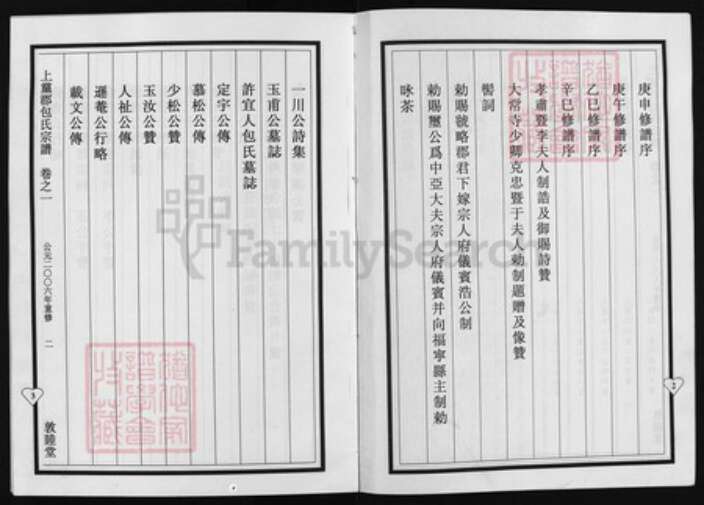 庚申修譜序
庚午修譜序
乙巳修譜序
辛巳修譜序
孝肅暨李夫人制誥及御賜詩贊
大常寺少卿克忠暨于夫人勅制題贈及像贊
勅賜虢略郡君下嫁宗人府儀賓浩公制
勅賜璽公爲中亞大夫宗人府儀賓并向福寧縣主制勅
咏茶
2
一川公詩集
玉甫公墓誌
許宜人包氏墓誌
定宇公傳
慕松公傳
少松公贊
玉汝公贊
人祉公傳
遜菴公行略
載文公傳
上黨郡包氏宗譜 卷之一 公元二〇〇六年重修 二 敦睦堂
3
FamilySearch